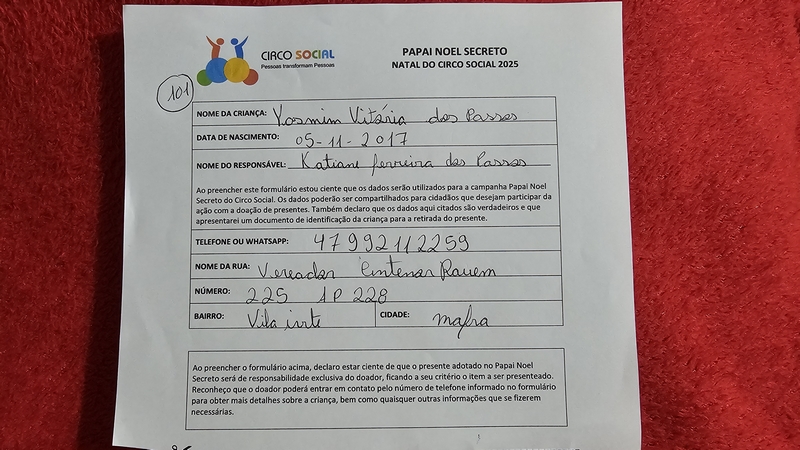 CIRCO SOCIAL
Pessoas transformam Pessoas
PAPAI NOEL SECRETO
NATAL DO CIRCO SOCIAL 2025
101
NOME DA CRIANÇA: Yasmim Vitária dos Passos
DATA DE NASCIMENTO: 05-11-2017
NOME DO RESPONSÁVEL: Katiane ferreira dos Passos
Ao preencher este formulário estou ciente que os dados serão utilizados para a campanha Papai Noel
Secreto do Circo Social. Os dados poderão ser compartilhados para cidadãos que desejam participar da
ação com a doação de presentes. Também declaro que os dados aqui citados são verdadeiros e que
apresentarei um documento de identificação da criança para a retirada do presente.
TELEFONE OU WHATSAPP: 47992112259
NOME DA RUA: Vereador
NÚMERO: 225 AP 228
BAIRRO: Vila CIDADE: mafra
Ao preencher o formulário acima, declaro estar ciente de que o presente adotado no Papai Noel
Secreto será de responsabilidade exclusiva do doador, ficando a seu critério o item a ser presenteado.
Reconheço que o doador poderá entrar em contato pelo número de telefone informado no formulário
para obter mais detalhes sobre a criança, bem como quaisquer outras informações que se fizerem
necessárias.